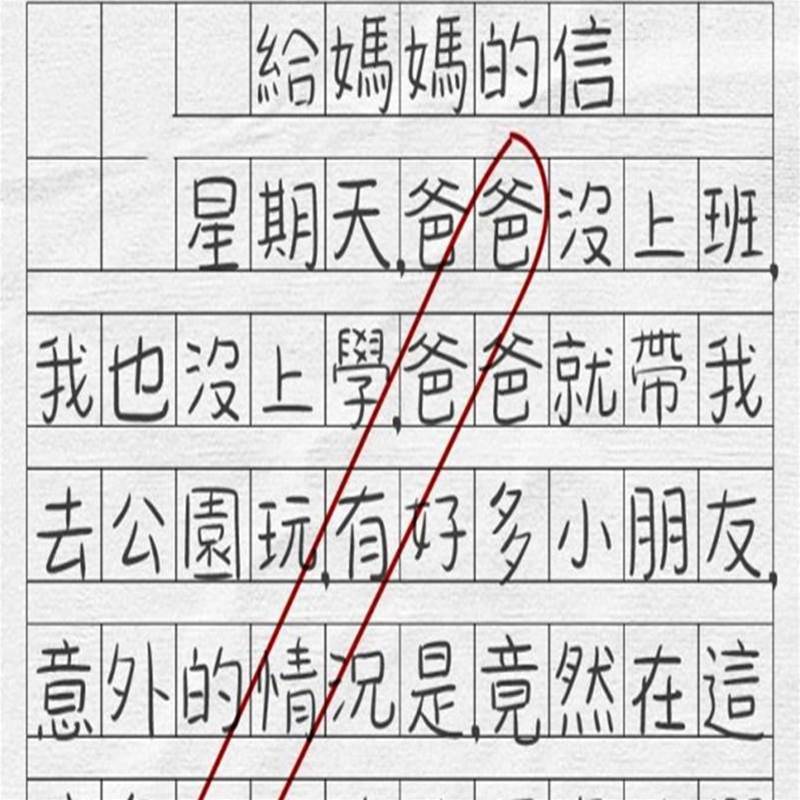 給媽媽的信
星期天,爸爸沒上班,
我也沒上學,爸爸就帶我
去公園玩,有好多小朋友,
意外的情況是,竟然在這